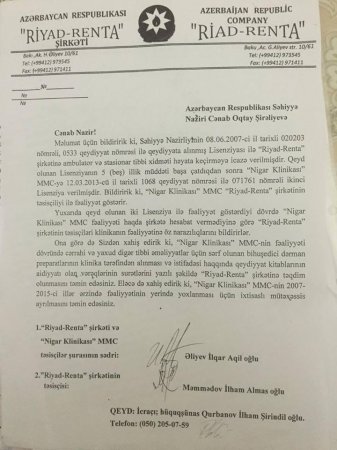 AZƏRBAYCAN RESPUBLİKASI
"RİYAD-RENTA"
ŞİRKƏTİ
Bakı ,Ak. H.Əliyev 10/61
Tel: (+99412) 973545
Fax: (+99412) 971411
AZERBAIJAN REPUBLIC
COMPANY
"RİAD-RENTA"
Baku ,Ac. G.Aliyev str. 10/61
Tel: (+99412) 973545
Fax: (+99412) 971411
№
№
Azərbaycan Respublikası Səhiyyə
Naziri Cənab Oqtay Şirəliyevə
Cənab Nazir!
Məlumat üçün bildiririk ki, Səhiyyə Nazirliyinin 08.06.2007-ci il tarixli 020203
nömrəli, 0533 qeydiyyat nömrəsi ilə qeydiyyata alınmış Lisenziyası ilə "Riyad-Renta"
şirkətinə ambulator və stasionar tibbi xidməti həyata keçirməyə icazə verilmişdir. Qeyd
olunan Lisenziyanın 5 (beş) illik müddəti başa çatdıqdan sonra "Nigar Klinikası"
MMC-yə 12.03.2013-cü il tarixli 1068 qeydiyyat nömrəli ilə 071761 nömrəli ikinci
Lisenziya verilmişdir. Hər iki klinika, "Nigar Klinikası" MMC "Riyad-Renta" şirkətinin
təsisçiliyi ilə fəaliyyət göstərir.
Yuxarıda qeyd olunan iki Lisenziya ilə fəaliyyət göstərdiyi dövrdə "Nigar
Klinikası" MMC fəaliyyəti haqda şirkətə hesabat verməдiyinə görə "Riyad-Renta"
şirkətinin təsisçiləri klinikanın fəaliyyətindən öz narazılıqlarını bildirirlər.
Ona görə də Sizdən xahiş edirik ki, "Nigar Klinikası" MMC-nin fəaliyyəti
dövründə cərrahi və yaxud digər tibbi əməliyyatlar üçün sərf olunan bihuşedici dərman
preparatlarının klinika tərəfindən alınması və istifadəsi haqqında qeydiyyat kitablarının
aidiyyatı olaq vərəqlərinin surətlərini yazılı şəkildə "Riyad-Renta" şirkətinə təqdim
olunmasını təmin edəsiniz. Eləcə də xahiş edirik ki, "Nigar Klinikası" MMC-nin 2007-
2015-ci illər ərzində fəaliyyətinin yerində yoxlanması üçün ixtisaslı mütəxəssis
ayrılmasını təmin edəsiniz.
1."Riyad-Renta" şirkəti və
"Nigar Klinikası" MMC
təsisçilər şurasının sədri:
Əliyev İlqar Aqil oğlu
2."Riyad-Renta" şirkətinin
təsisçisi:
Məmmədov İlham Almas oğlu
QEYD: İcraçı; hüquqşünas Qurbanov İlham Şirindil oğlu.
Telefon: (050) 205-07-59